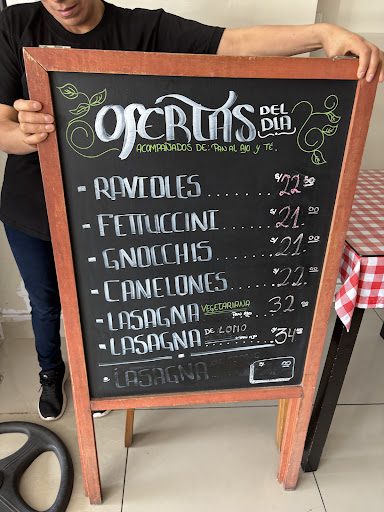 OFERTAS DEL DIA
ACOMPAÑADOS DE: PAN AL AJO Y TÉ.
- RAVIOLES ........ S/ 22.50
- FETTUCCINI ...... S/ 21.00
- GNOCCHIS ........ S/ 21.00
- CANELONES ....... S/ 22.00
- LASAGNA VEGETARIANA ... 32
- LASAGNA DE LOMO ... S/ 34
- LASAGNA